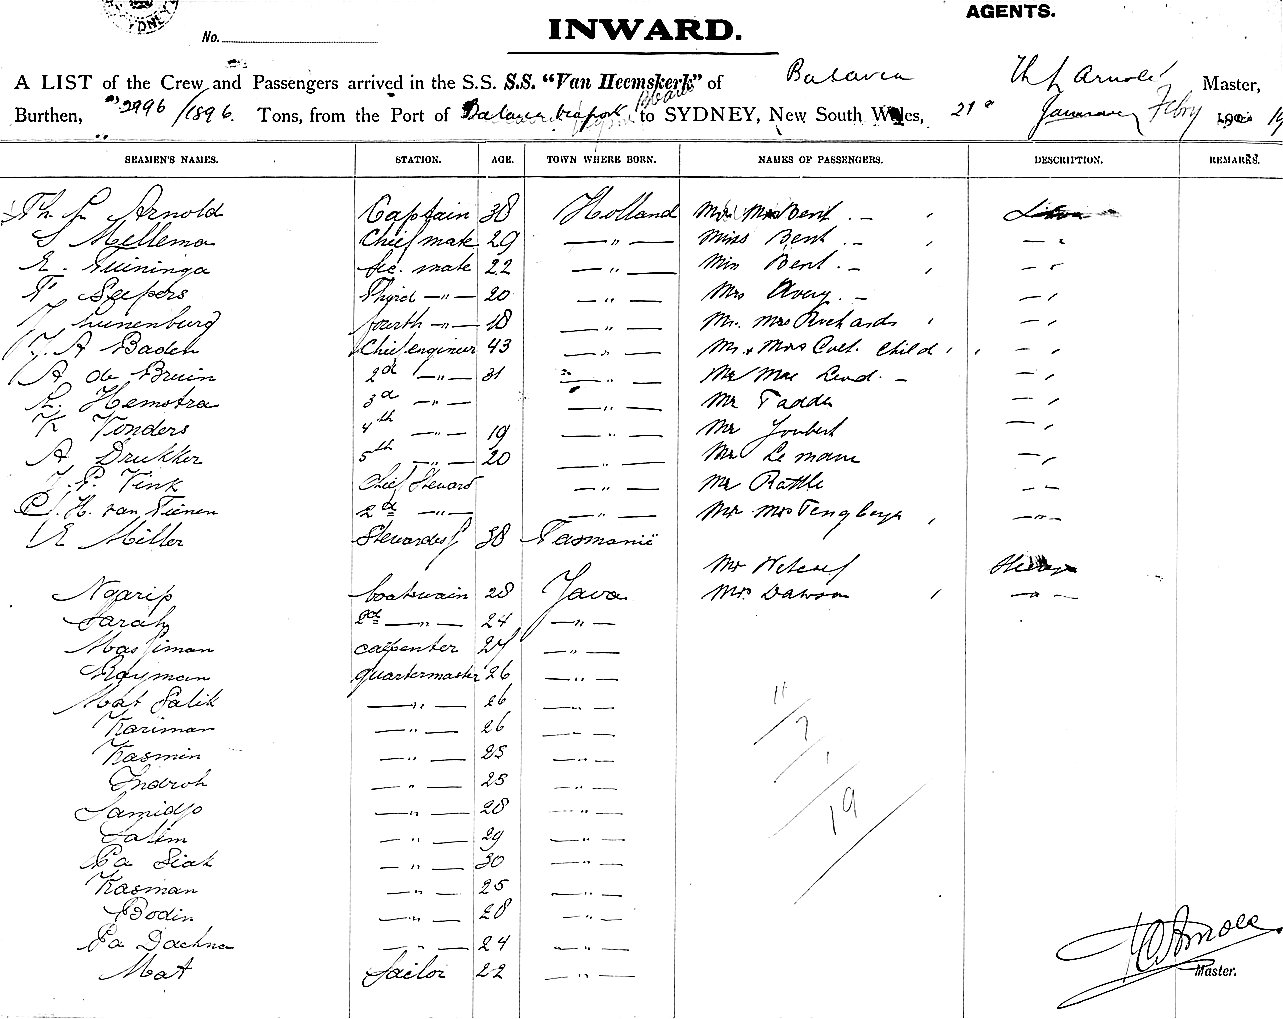 AGENTS.
INWARD.
No.
A LIST of the Crew and Passengers arrived in the S.S. S.S. "Van Heemskerk" of Batavia Th L Arnold Master,
Burthen, 2996/1896 Tons, from the Port of Batavia to SYDNEY, New South Wales, 21st January Feby 19
SEAMEN'S NAMES. STATION. AGE. TOWN WHERE BORN. NAMES OF PASSENGERS. DESCRIPTION. REMARKS.
Th. L Arnold Captain 38 Holland Mr Mrs Bent
S Mellema Chief mate 29 — " — Miss Bent — "
E. Tuininga Sec. mate 22 — " — Miss Bent — "
F Seepers Third — " — 20 — " — Mrs Avery — "
Luinenburg fourth — " — 18 — " — Mr. Mrs Richards — "
A Baden Chief engineer 43 — " — Mr & Mrs child — "
A de Bruin 2d — " — 31 — " — Mr — "
Hemstra 3d — " — — " — Mr — "
K Vonders 4th — " — 19 — " — Mr Joubert — "
A Drukker 5th — " — 20 — " — Mr — "
P. Vink Chief Steward — " — Mr Rattle — "
H. van Tienen 2d — " — — " — Mr Mrs — " —
E Miller Stewardess 38 Tasmanië
Mr
Ngarip boatswain 28 Java Mr. Dawson — " —
Sarah 2d — " — 24 — " —
Massiman carpenter 27 — " —
Rayman quartermaster 26 — " —
Mat Salik — " — 26 — " —
Kariman — " — 26 — " —
Kasmin — " — 25 — " —
Indroh — " — 25 — " —
Samidjo — " — 28 — " —
Salim — " — 29 — " —
Pa Siah — " — 30 — " —
Kasman — " — 25 — " —
Bodin — " — 28 — " —
Pa — " — 24 — " —
Mat Sailor 22 — " —
11
7
1
19
Arnold
Master.